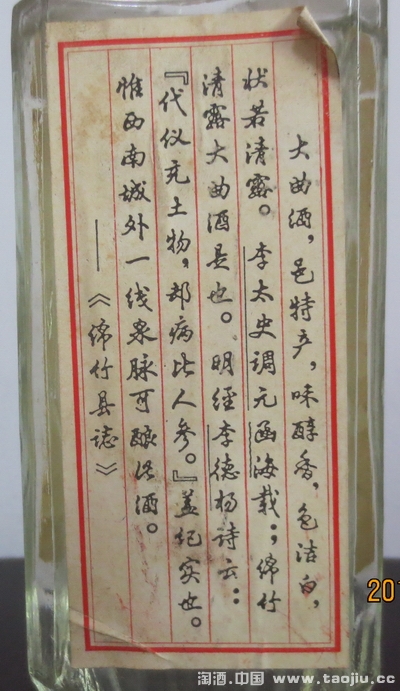 大曲酒，邑特产，味醇香，色洁白，
状若清露。李太史调元函海载：，绵竹
清露大曲酒是也。明经李德杨诗云：：
『代仪充土物，却病比人参。』盖纪实也。
惟西南城外一线泉脉可酿此酒。
——《绵竹县志》
201
淘酒.中国 www.taojiu.cc